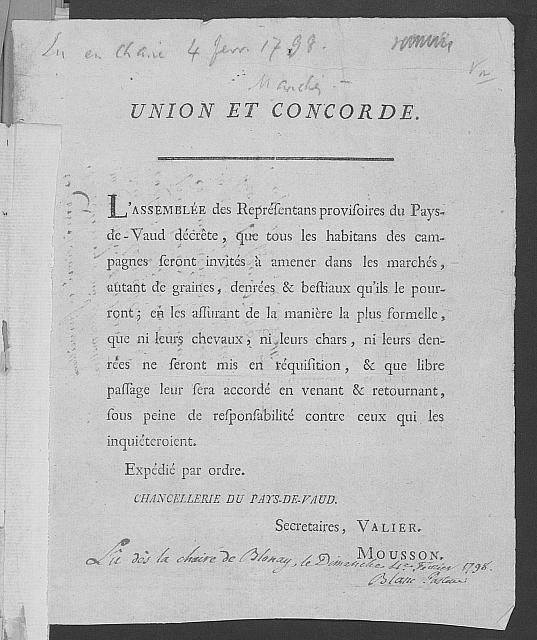 Lu en chaire 4 fevr 1798.
Marchés
UNION ET CONCORDE.
L'ASSEMBLÉE des Repréſentans proviſoires du Pays-
de-Vaud décrête, que tous les habitans des cam-
pagnes ſeront invités à amener dans les marchés,
autant de graines, denrées & beſtiaux qu'ils le pour-
ront; en les aſſurant de la manière la plus formelle,
que ni leurs chevaux, ni leurs chars, ni leurs den-
rées ne ſeront mis en réquiſition, & que libre
paſſage leur ſera accordé en venant & retournant,
ſous peine de reſponſabilité contre ceux qui les
inquiéteroient.
Expédié par ordre.
CHANCELLERIE DU PAYS-DE-VAUD.
Secretaires, VALIER.
MOUSSON.
Lû dès la chaire de Blonay, le Dimanche 4e. Février 1798.
Blanc Pasteur